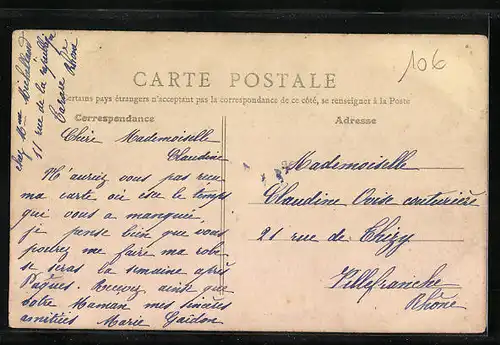 106
chez Mme Michallard
11 rue de la république
Tarare Rhône
CARTE POSTALE
ertains pays étrangers n'acceptant pas la correspondance de ce côté, se renseigner à la Poste
Correspondance
Adresse
Chère Mademoiselle
Claudine
N'auriez vous pas reçu
ma carte où est ce le temps
qui vous a manquée,
je pense bien que vous
pourez me faire ma robe
se seras la semaine après
Pâques. Recevez ainsi que
votre Maman mes sincères
amitiées Marie Gaidon
Mademoiselle
Claudine Ovise couturière
21 rue de Thizy
Villefranche
Rhône